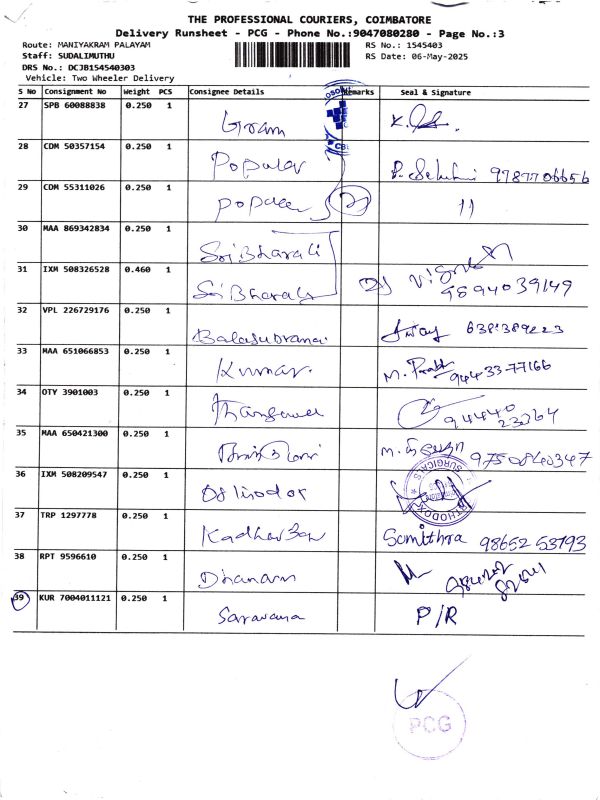 THE PROFESSIONAL COURIERS, COIMBATORE
Delivery Runsheet - PCG - Phone No.:9047080280 - Page No.:3
Route: MANIYAKRAM PALAYAM RS No.: 1545403
Staff: SUDALIMUTHU RS Date: 06-May-2025
DRS No.: DCJB154540303
Vehicle: Two Wheeler Delivery
S No Consignment No Weight PCS Consignee Details Remarks Seal & Signature
27 SPB 60088838 0.250 1
28 CDM 50357154 0.250 1 Popular 9787706656
29 CDM 55311026 0.250 1 popular 11
30 MAA 869342834 0.250 1 Sri Bharali
31 IXM 508326528 0.460 1 Sri Bharali 9894039149
32 VPL 226729176 0.250 1 6381389223
33 MAA 651066853 0.250 1 Kumar 94433 77166
34 OTY 3901003 0.250 1 94440
35 MAA 650421300 0.250 1 9750840347
36 IXM 508209547 0.250 1 SURGICALS ORTHODOX
37 TRP 1297778 0.250 1 Somithra 98652 53793
38 RPT 9596610 0.250 1 Dhanam
39 KUR 7004011121 0.250 1 Saravana P/R
PCG